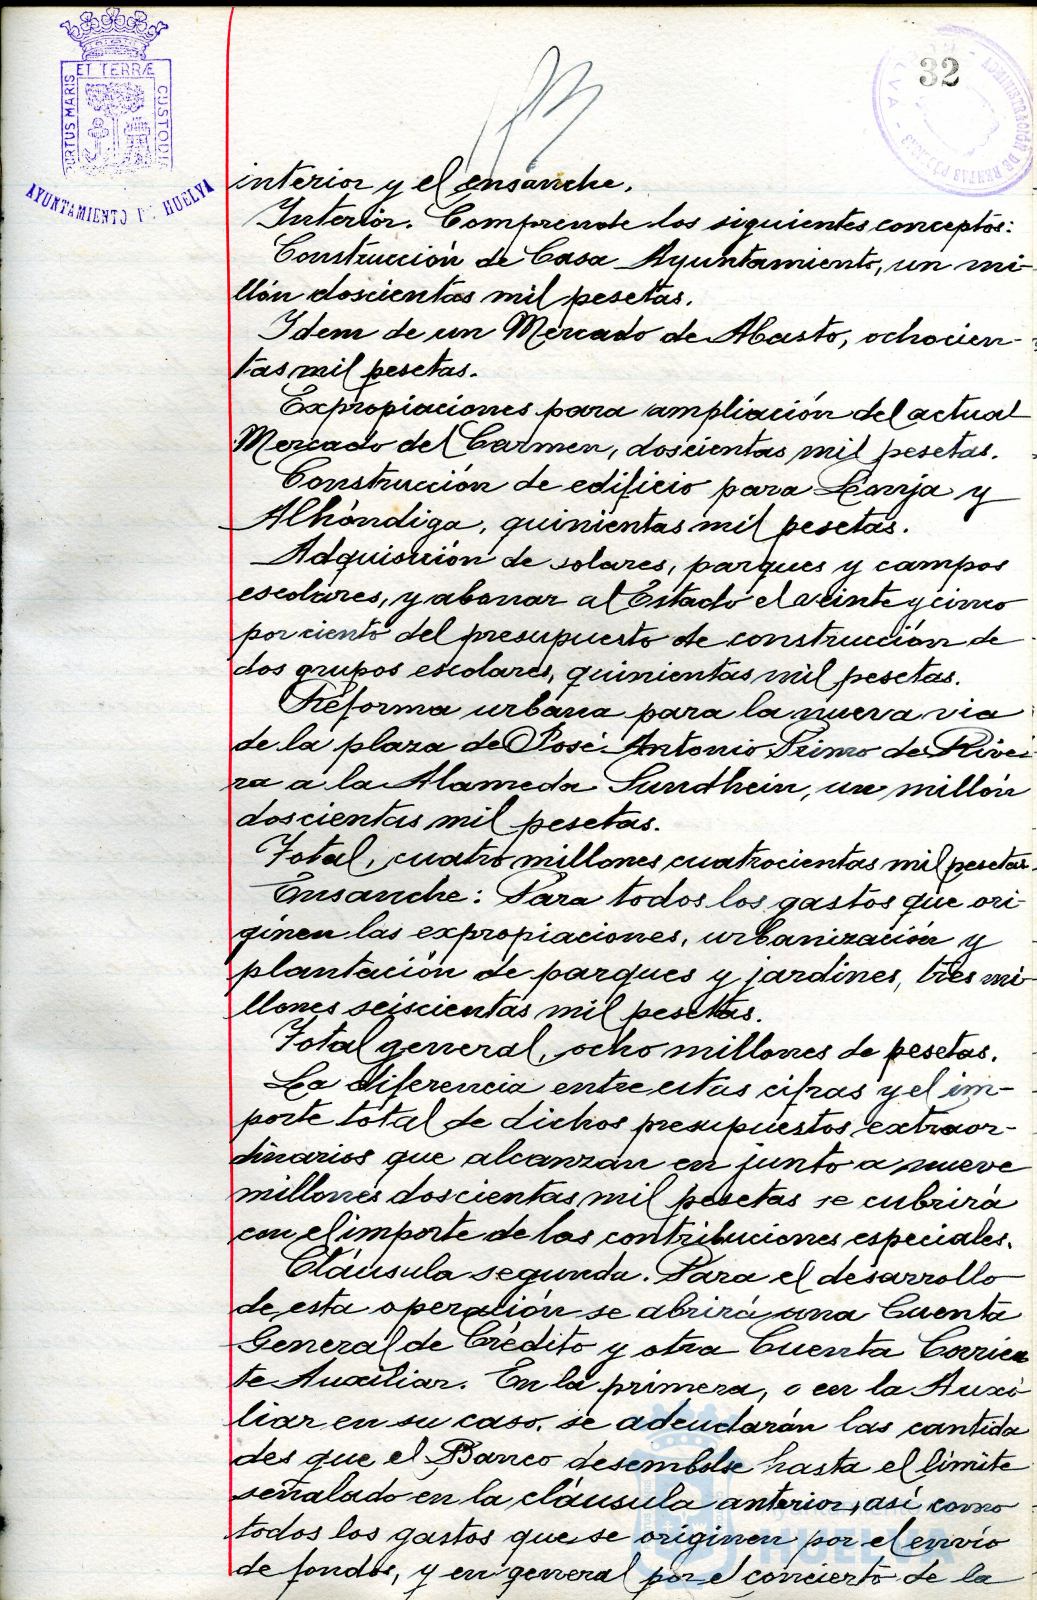 PORTUS MARIS ET TERRÆ CUSTODIA
AYUNTAMIENTO DE HUELVA
32
ADMINISTRACIÓN DE RENTAS PÚBLICAS
interior y el ensanche.
Interior. Comprende los siguientes conceptos:
Construcción de Casa Ayuntamiento, un mi-
llón doscientas mil pesetas.
Idem de un Mercado de Abasto, ochocien-
tas mil pesetas.
Expropiaciones para ampliación del actual
Mercado del Carmen, doscientas mil pesetas.
Construcción de edificio para Lonja y
Alhóndiga, quinientas mil pesetas.
Adquisición de solares, parques y campos
escolares, y abonar al Estado el veinte y cinco
por ciento del presupuesto de construcción de
dos grupos escolares, quinientas mil pesetas.
Reforma urbana para la nueva via
de la plaza de José Antonio Primo de Rive-
ra a la Alameda Sundhein, un millón
doscientas mil pesetas.
Total, cuatro millones cuatrocientas mil pesetas.
Ensanche: Para todos los gastos que ori-
ginen las expropiaciones, urbanización y
plantación de parques y jardines, tres mi-
llones seiscientas mil pesetas.
Total general, ocho millones de pesetas.
La diferencia entre estas cifras y el im-
porte total de dichos presupuestos extraor-
dinarios que alcanzan en junto a nueve
millones doscientas mil pesetas se cubrirá
con el importe de las contribuciones especiales.
Cláusula segunda. Para el desarrollo
de esta operación se abrirá una Cuenta
General de Crédito y otra Cuenta Corrien
te Auxiliar. En la primera, o en la Auxi
liar en su caso, se adeudarán las cantida
des que el Banco desembolse hasta el límite
señalado en la cláusula anterior, así como
todos los gastos que se originen por el envío
de fondos, y en general por el concierto de la
Ayuntamiento de
HUELVA